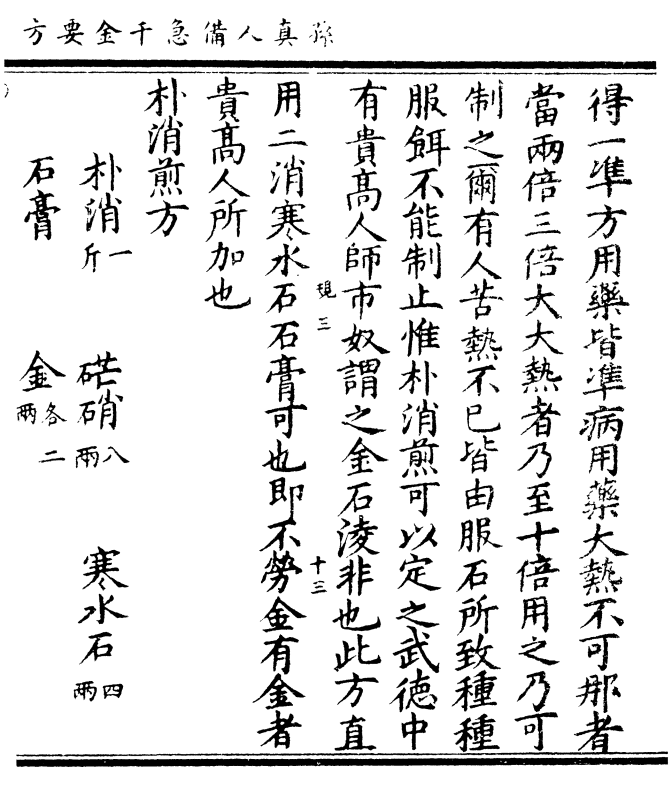 孫真人備急千金要方
得一準方用藥皆準病用藥大熱不可那者
當兩倍三倍大大熱者乃至十倍用之乃可
制之爾有人苦熱不已皆由服石所致種種
服餌不能制止惟朴消煎可以定之武德中
有貴高人師市奴謂之金石淩非也此方直
現三
十三
用二消寒水石石膏可也即不勞金有金者
貴高人所加也
朴消煎方
朴消一斤 硭硝八兩 寒水石四兩
石膏 金各二兩